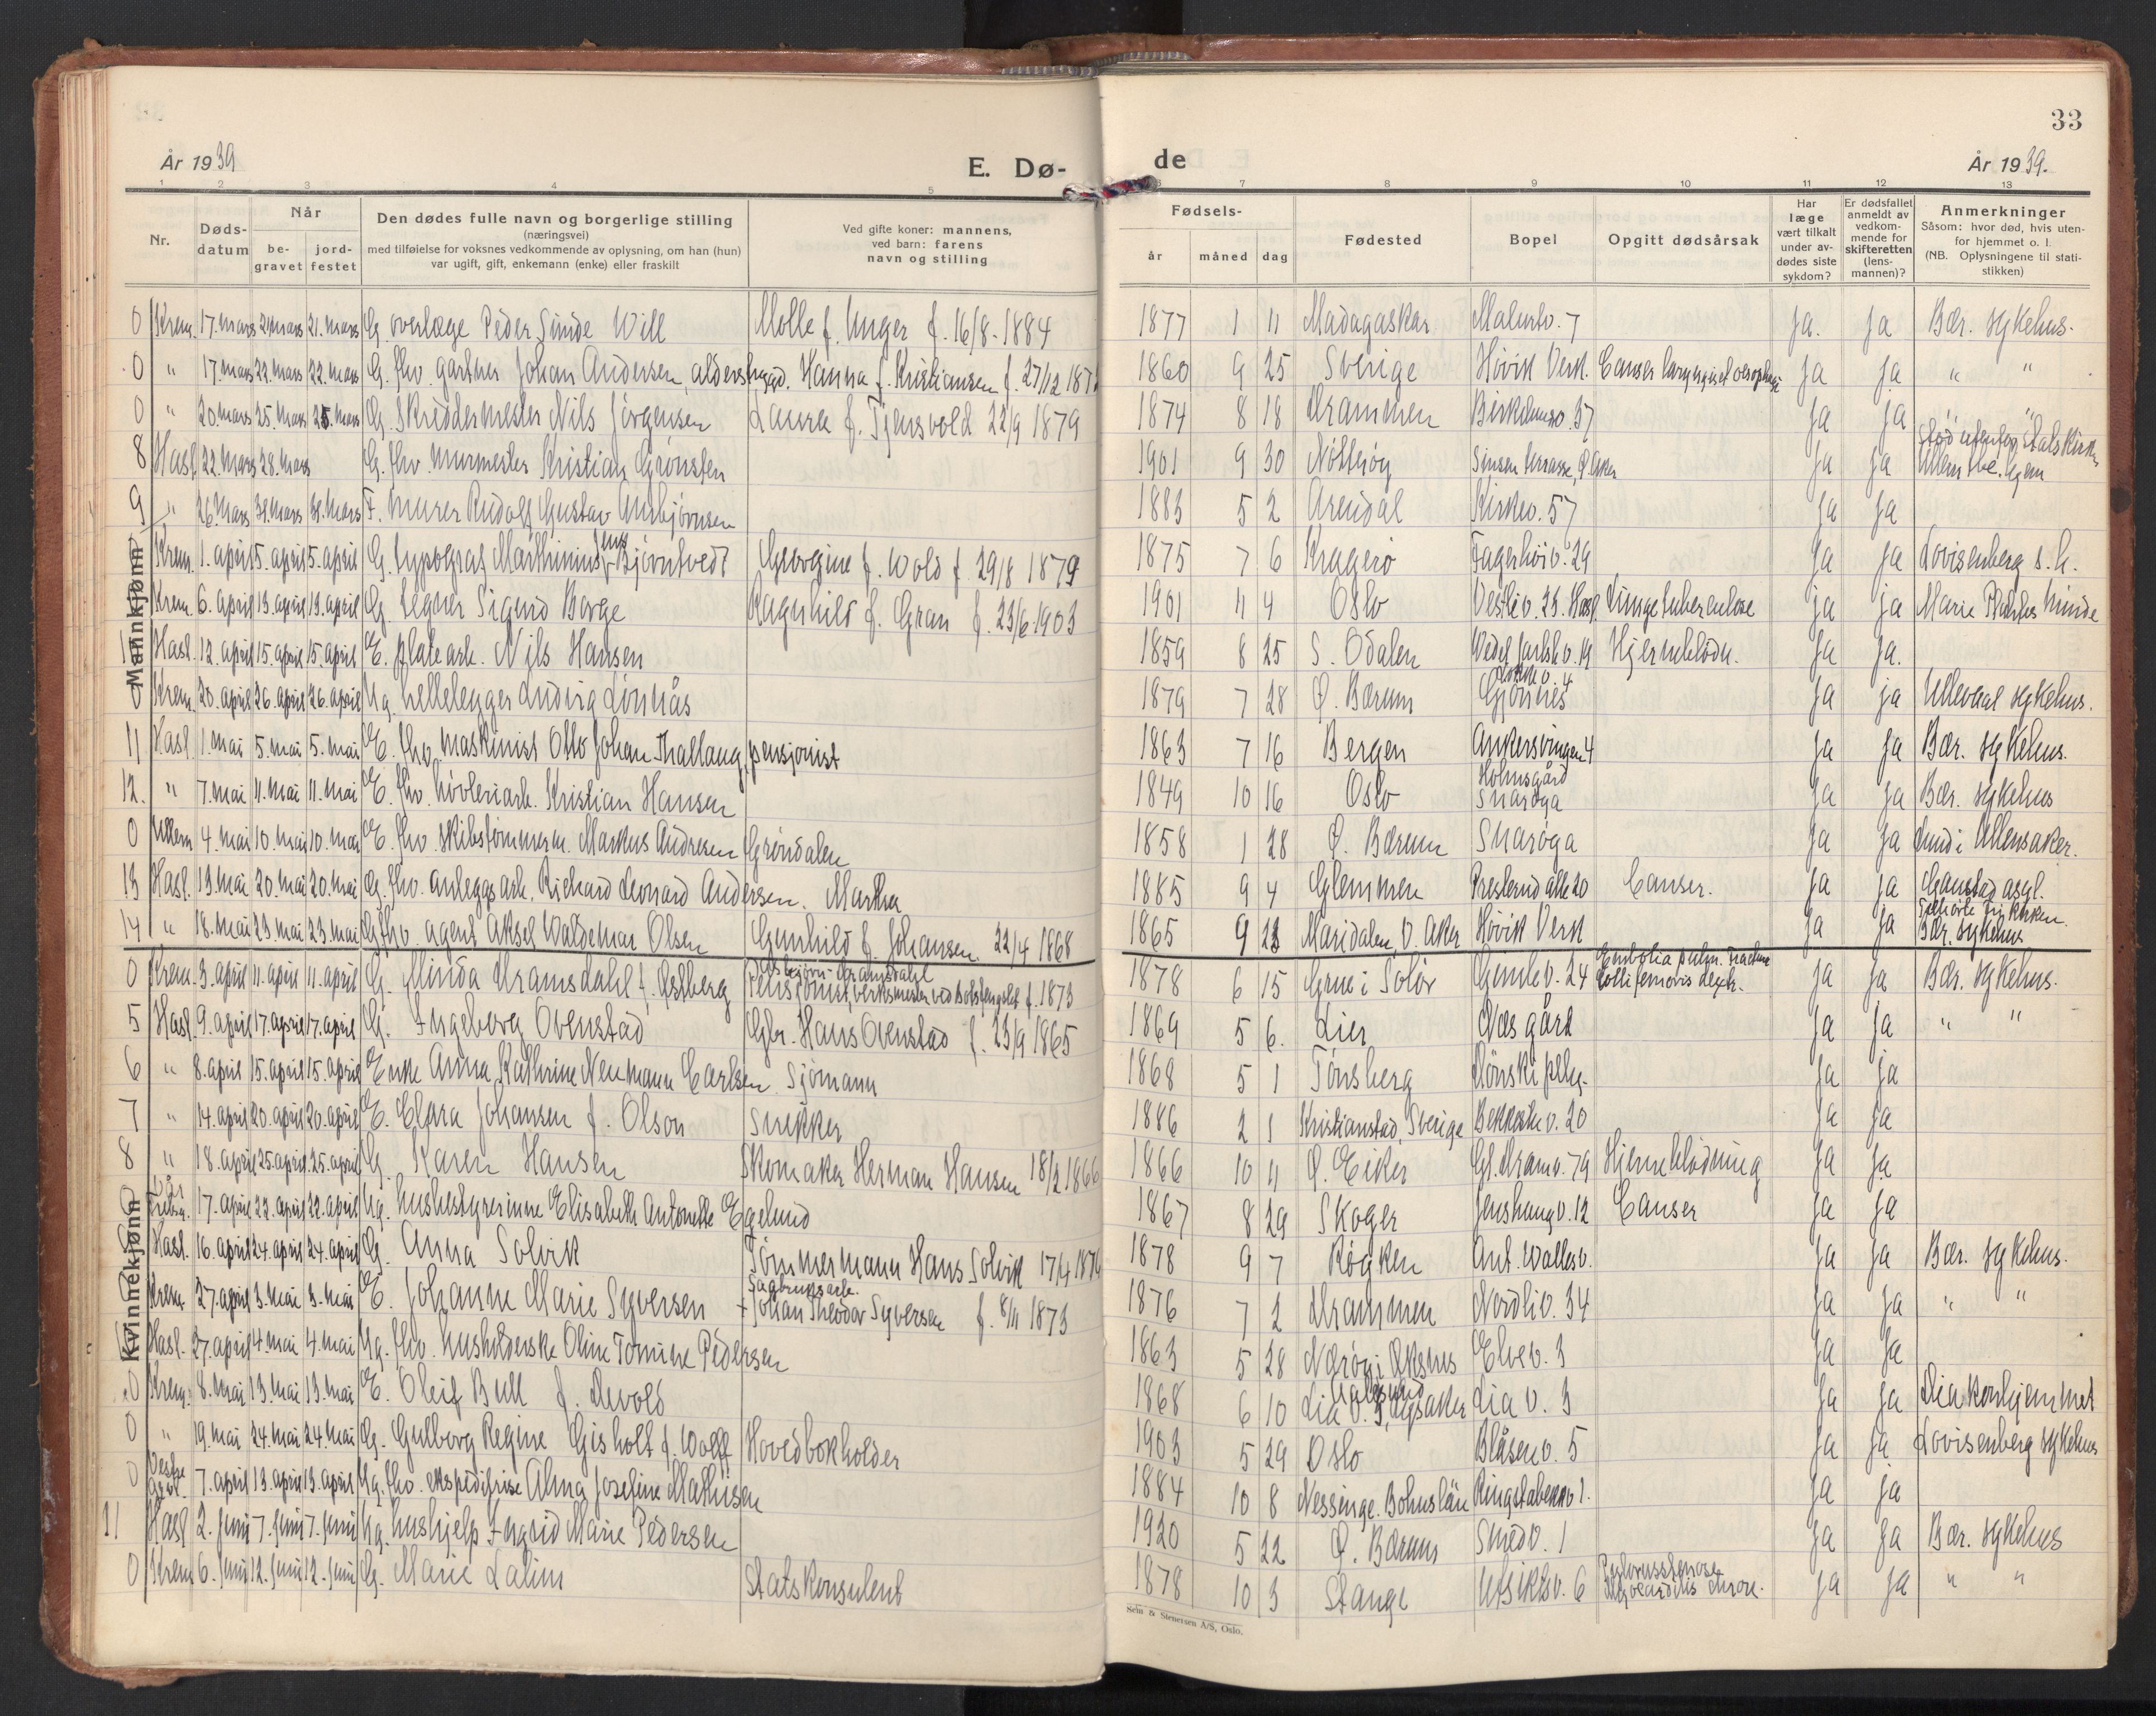 År 1939
E. Dø-
1 2 3 4 5
Nr.
Døds-
datum
Når
be-
gravet
jord-
festet
Den dødes fulle navn og borgerlige stilling
(næringsvei)
med tilføielse for voksnes vedkommende av oplysning, om han (hun)
var ugift, gift, enkemann (enke) eller fraskilt
Ved gifte koner: mannens,
ved barn: farens
navn og stilling
Mannkjønn
0 Krem. 17. mars 21. mars 21. mars G. overlæge Peder Sinde Will Molle f. Unger f. 16/8-1884
0 " 17. mars 22. mars 22. mars G. fhv. gartner Johan Andersen, alderstrygd. Hanna f. Kristiansen f. 27/12 187
0 " 20. mars 25. mars 25. mars G. Skreddermester Nils Jörgensen Laura f. Tjensvold 22/9 1879
8 Hasl. 22. mars 28. mars G. fhv. murmester Kristian Grønsten
9 " 26. mars 31. mars 31. mars F. murer Rudolf Gustav Ausbjørnsen
Krem. 1. april 5. april 5. april G. typograf Marthinius Jens Bjørntvedt Georgine f. Wold f. 29/8 1879
Krem. 6. april 13. april 13. april G. tegner Sigurd Borge Ragnhild f. Gran f. 23/6 1903
Hasl. 12. april 15. april 15. april E. platearb. Nils Hansen
0 Krem. 20. april 26. april 26. april Ug. hellelegger Ludvig Lönnås
11 Hasl. 1. mai 5. mai 5. mai E. fhv. maskinist Otto Johan Thallaug, pensjonist
12. " 7. mai 11. mai 11. mai E. fhv. høvleriarb. Kristian Hansen
0 Ullern 4. mai 10. mai 10. mai E. fhv. skibstömmerm. Markus Andresen Gröndalen
13 Hasl. 13. mai 20. mai 20. mai G. fhv. anleggsarb. Richard Leonard Andersen. Martha
14 " 18. mai 23. mai 23. mai G. fhv. agent Aksel Waldemar Olsen Gunhild f. Johansen 22/4 1868
Kvinnekjønn
0 Krem. 3. april 11. april 11. april G. Minda Kramsdahl f. Østberg
5 Hasl. 9. april 17. april 17. april G. Ingeborg Ovenstad Gbr. Hans Ovenstad f. 23/9 1865
6 " 8. april 15. april 15. april Enke Anna Kathrine Neumann Carlsen Sjömann
7 " 14. april 20. april 20. april E. Clara Johansen f. Olson Snikker
8 " 18. april 25. april 25. april G. Karen Hansen Skomaker Herman Hansen 18/2 1866
Vår Frelsers 17. april 22. april 22. april Ug. husbestyrerinne Elisabeth Antonette Egelund
Hasl. 16. april 24. april 24. april G. Anna Solvik Tömmermann Hans Solvik 17/4 187
Krem. 27. april 3. mai 3. mai E. Johanne Marie Syversen Sagbruksarb. + Johan Theodor Syversen f. 8/11 1873
Hasl. 27. april 4. mai 4. mai Ug. fhv. husholderske Oline Tomine Pedersen
0 Krem. 8. mai 13. mai 13. mai E. Oleif Bull f. Devold
0 " 19. mai 24. mai 24. mai G. Gulborg Regine Gisholt f. Wolff Hovedbokholder
0 Vestre gravl. 7. april 13. april 13. april Ug. fhv. ekspeditrise Alma Josefine Mathisen
11 Hasl 2. juni 7. juni 7. juni Ug. hushjelp Ingrid Marie Pedersen
0 Krem 6. juni 12. juni 12. juni G. Marie Lalim Statskonsulent
33
de
År 1939.
6 7 8 9 10 11 12 13
Fødsels-
år måned dag
Fødested
Bopel
Opgitt dødsårsak
Har
læge
vært tilkalt
under av-
dødes siste
sykdom?
Er dødsfallet
anmeldt av
vedkom-
mende for
skifteretten
(lens-
mannen)?
Anmerkninger
Såsom: hvor død, hvis uten-
for hjemmet o. l.
(NB. Oplysningene til stati-
stikken)
1877 1 11 Madagaskar Malurtv. 7 Ja. Ja Bær. sykehus.
1860 9 25 Sverige Høvik Verk. Canser laryngis et oesophagi Ja Ja " "
1874 8 18 Drammen Birkelundsv. 37 Ja Ja " "
1901 9 30 Nötterøy Sinsen terrasse, Ø. Aker Ja Ja
1883 5 2 Arendal Kirkev. 57 Ja Ja
1875 7 6 Kragerö Fagerhöiv. 29 Ja Ja Lovisenberg s.h.
1901 11 4 Oslo Vestliv. 23. Hasl. Lungetuberculose ja ja Marie Plahtes Minde
1859 8 25 S. Odalen Vedel Jarlsb. v. 19 Hjerneblödn. Ja Ja.
1879 7 28 Ø. Bærum Gjønnes Ja ja Ullevaal sykehus.
1863 7 16 Bergen Ankersvingen 4 Ja Ja Bær. sykehus.
1849 10 16 Oslo Holmsgård Snarøya Ja Ja Bær. sykehus
1858 1 28 Ø. Bærum Snarøya Ja Ja Lund i Ullensaker.
1885 9 4 Glemmen Presterud alle 20 Canser. Ja Ja Gaustad asyl.
1865 9 23 Maridalen, V. Aker Høvik Verk Ja Ja Bær. sykehus
1878 6 15 Grue i Solör Gimlev. 24 Embolia pulm. Fractura colli femoris dextr. Ja Ja Bær. sykehus.
1869 5 6. Lier Næs gård Ja Ja " "
1868 5 1 Tönsberg Dönski pleh. Ja Ja
1886 2 1 Kristianstad, Sverige Bekkestuv. 20 Ja Ja
1866 10 11 Ø. Eiker Gl. Dramv. 79 Hjerneblödning Ja Ja
1867 8 29 Skoger Jenshaugv. 12 Canser Ja Ja
1878 9 7 Røyken Ant. Wallesv. Ja Ja Bær. sykehus.
1876 7 2 Drammen Nordliv. 34 Ja Ja " "
1863 5 28 Nærøy i Øksnes Elvev. 3 Ja Ja
1868 6 10 Lia v. 3, Lysaker Lia v. 3 Ja Ja Diakonhjemmet
1903 5 29 Oslo Blåsenv. 5 Ja Ja Lovisenberg sykehus
1884 10 8 Nessinge. Bohuslän Ringstabekkv 1. Ja ja
1920 5 22 Ø. Bærum Smedv. 1 Ja Ja Bær. sykehus
1878 10 3 Stange Utsiktsv. 6 Pylorusstenose Myocarditis chron. Ja Ja " "
Sem & Stenersen A/S, Oslo.